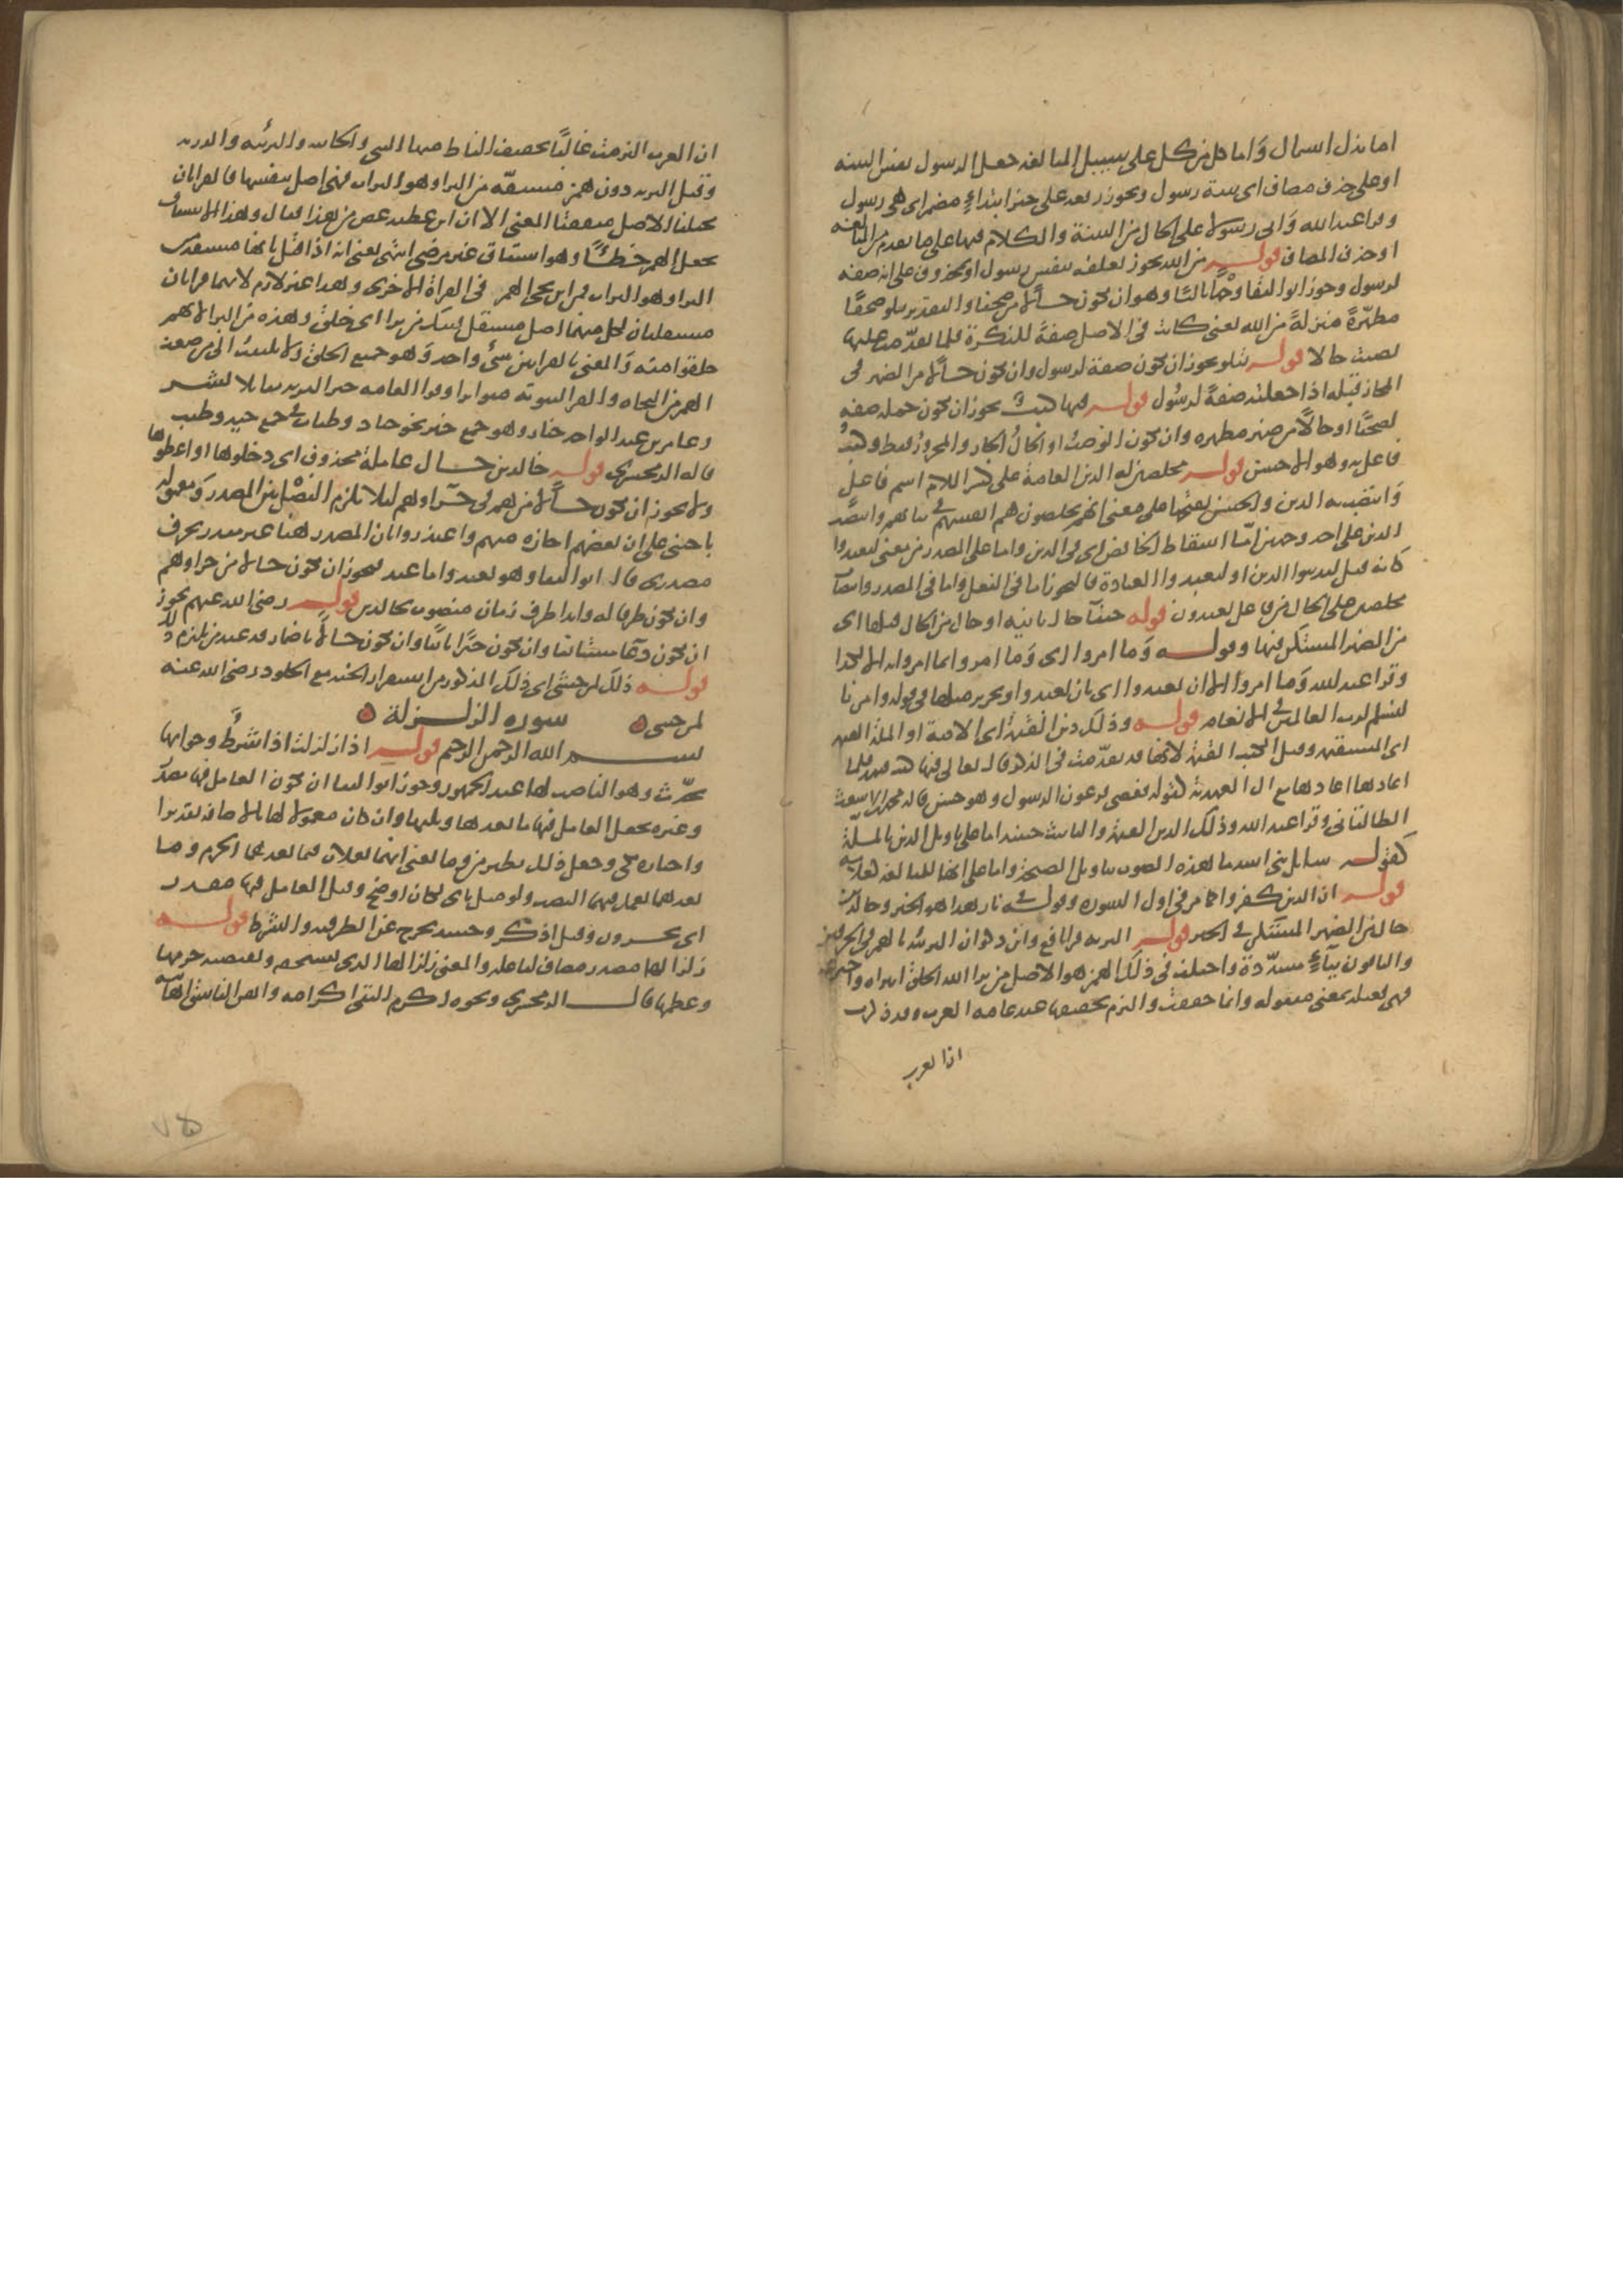 اما بدل اشتمال وَاما كل من كل على سبيل المبالغه جعل الرسول نفس البينه
او على حذف مضاف اى بينة رسول ويجوز رفعه على خبر ابتداءٍ مضمر اى هى رسول
وقرا عبد الله وَابى رسولا على الحال من البينة والكلام فيها على ما تقدم من المبالغه
او حذف المضاف قوله من الله يجوز تعلقه بنفس رسول او بمحذوف على انه صفه
لرسول وجوز ابو البقا وجهًا ثالثًا وهو ان يكون حالًا من صحفا والتقدير يتلو صحفًا
مطهّرةً منزلةً من الله يعنى كانت فى الاصل صفةً للنكرة فلما تقدّمت عليها
نصبت حالا قوله يتلو يجوز ان يكون صفة لرسول وان يكون حالًا من الضمير فى
الجار قبله اذا جعلته صفةً لرسُول قوله فيها كتبٌ يجوز ان يكون جمله صفه
لصحفًا او حالًا من ضمير مطهره وان يكون الوصفُ او الحالُ الجار والمجرورُ فقط وكتبٌ
فاعل به وهو الاحسن قوله مخلصين له الدين العامة على كسر اللام اسم فاعلٍ
وَانتصب به الدين والحسن بفتحها على معنى انهم يخلصون هم انفسهم فى نياتهم وانتصب
الدين على احد وجهين امّا اسقاط الخافض اى فى الدين واما على المصدر من معنى ليعبدوا
كانه قيل ليدينوا الدين او ليعبدوا العبادة فالتجوز اما فى الفعل واما فى المصدر وانتصاب
مخلصين على الحال من فاعل يعبدون قوله حنفآ حال ثانيه او حال من الحال قبلها اى
من الضمير المستكن فيها وقوله وَما امروا اى وَما امروا بما امروا به الا لكذا
وقرا عبد الله وَما امروا الا ان يعبدوا اى بان يعبدوا وتحرير مثلها فى قوله وامرنا
لنسلم لرب العالمين فى الانعام قوله وذلك دين القيمة اى الامة او الملة القيمه
اى المستقيمه وقيل الكتب القيمة لانها قد تقدّمت فى الذكر قال تعالى فيها كتب قيمه فلما
اعادها اعادها مع ال العهدية كقوله فعصى فرعون الرسول وهو حسن قاله محمد بن الاشعث
الطالقانى وقرا عبد الله وذلك الدين القيمة والتانيث حينئذ اما على تاويل الدين بالملّة
كقوله سايل بنى اسد ما هذه الصوت بتاويل الصيحة واما على انها للمبالغه كعلامه
قوله ان الذين كفروا كما مر فى اول السوره وقوله فى نار هذا هو الخبر وخالدين
حال من الضمير المستكن فى الخبر قوله البريه قرا نافع وابن ذكوان البريئه بالهمز فى الحرفين
والباقون بيآءٍ مشدّدة واختلف فى ذلك الهمز هو الاصل من برا الله الخلق ابتداه واخترعه
فهى فعيله بمعنى مفعوله وانما خففت والتزم تخفيفها عند عامه العرب وقد ذكرت
اذا لعرب
ان العرب التزمت غالبًا تخفيف الفاظ منها النبى والخابيه والبريّه والذريه
وقيل البريه دون همز مشتقّه من البرا وهو التراب فهى اصل بنفسها فالقراتان
مختلفتا الاصل متفقتا المعنى الا ان ابن عطيه غض من هذا فقال وهذا الاشتقاق
يجعل الهمز خطأً وهو اشتقاق غير مرضى انتهى يعنى انه اذا قيل بانها مشتقه من
البرا وهو التراب فمن اين يجى الهمز فى القراة الاخرى وهذا غير لازم لانهما قراتان
مستقلتان لكل منهما اصل مستقل فتلك من برا اى خلق وهذه من البرا لانهم
خلقوا منه وَالمعنى بالقراتين شئ واحد وَهو جميع الخلق ولا يلتفت الى من ضعف
الهمز من النحاه والقرا لثبوته متواترا وقرا العامه خير البريه مقابلا لشر
وعامر بن عبد الواحد خيار وهو جمع خير نحو جياد وطياب فى جمع جيد وطيب
قاله الزمخشرى قوله خالدين حال عامله محذوف اى دخلوها او اعطوها
ولا يجوز ان يكون حالًا من هم فى جزآوهم ليلا يلزم الفصْل بين المصدر وَمعموله
باجنبى على ان بعضهم اجازه منهم واعتذروا بان المصدر هنا غير مقدر بحرف
مصدرى قال ابو البقا وهو بعيد واما عند فيجوز ان يكون حالا من جزاوهم
وان يكون ظرفا له وابدا ظرف زمان منصوب بخالدين قوله رضى الله عنهم يجوز
ان يكون دعآ مستانفا وان يكون خبرًا ثانيًا وان يكون حالًا باضمار قد عند من يلتزم ذلك
قوله ذلك لمن خشى اى ذلك المذكور من استقرار الجنه مع الخلود ورضى الله عنه
لمن خشى ۞ سوره الزلزلة ۞
بسم الله الرحمن الرحيم قوله اذا زلزلت اذا شرطٌ وجوابها
تحدّث وهو الناصب لها عند الجمهور وجوز ابو البقا ان يكون العامل فيها مقدّر
وغيره يجعل العامل فيها ما بعدها ويليها وان كان معمولا لها بالاضافه تقديرا
واختاره مكى وجعل ذلك نظير من وما يعنى انهما يعملان فيما بعدهما الجزم وما
بعدهما يعمل فيهما النصب ولو مثل باى لكان اوضح وقيل العامل فيها مقدر
اى يحشرون وقيل اذكر وحينئذ يخرج عن الظرفيه والشرط قوله
زلزالها مصدر مضاف لفاعله والمعنى زلزالها الذى يستحقه ويقتضيه جرمها
وعظمها قال الزمخشرى ونحوه اكرم التقى اكرامه واهن الفاسق اهانته